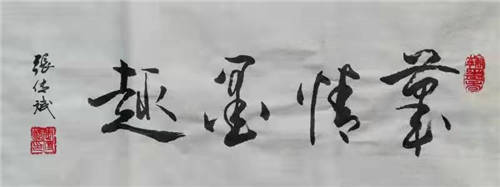 筆情墨趣
張斌